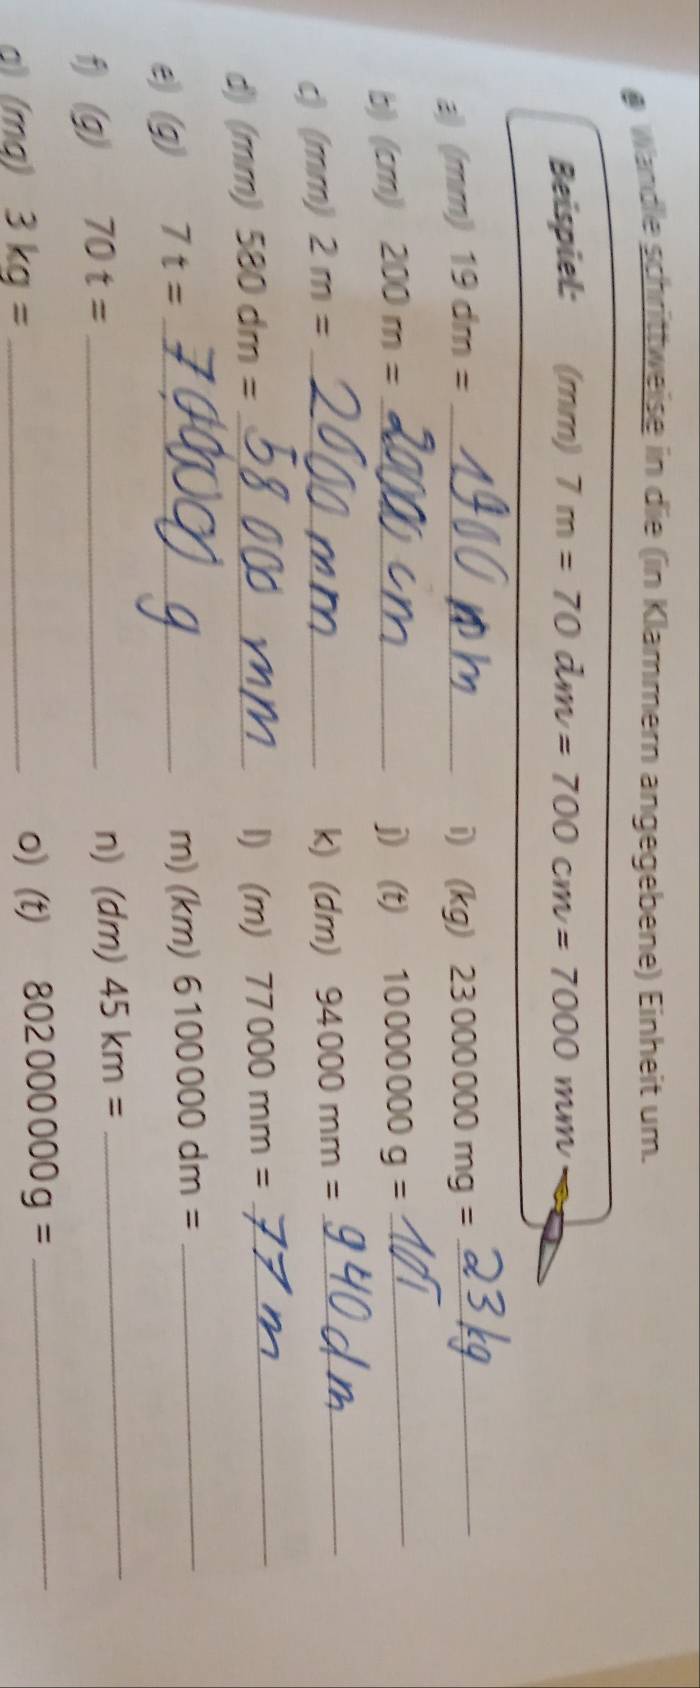 Wandle schrittweise in die (in Klammern angegebene) Einheit um.
Beispiel: (mm) 7 m = 70 dm = 700 cm = 7000 mm
a) (mm) 19 dm = 1900 mm
b) (cm) 200 m = 20000 cm
c) (mm) 2 m = 2000 mm
d) (mm) 580 dm = 58 000 mm
e) (g) 7 t = 7000000 g
f) (g) 70 t =
g) (mg) 3 kg =
i) (kg) 23 000 000 mg = 23 kg
j) (t) 10 000 000 g = 10t
k) (dm) 94 000 mm = 940 dm
l) (m) 77 000 mm = 77 m
m) (km) 6 100 000 dm =
n) (dm) 45 km =
o) (t) 802 000 000 g =